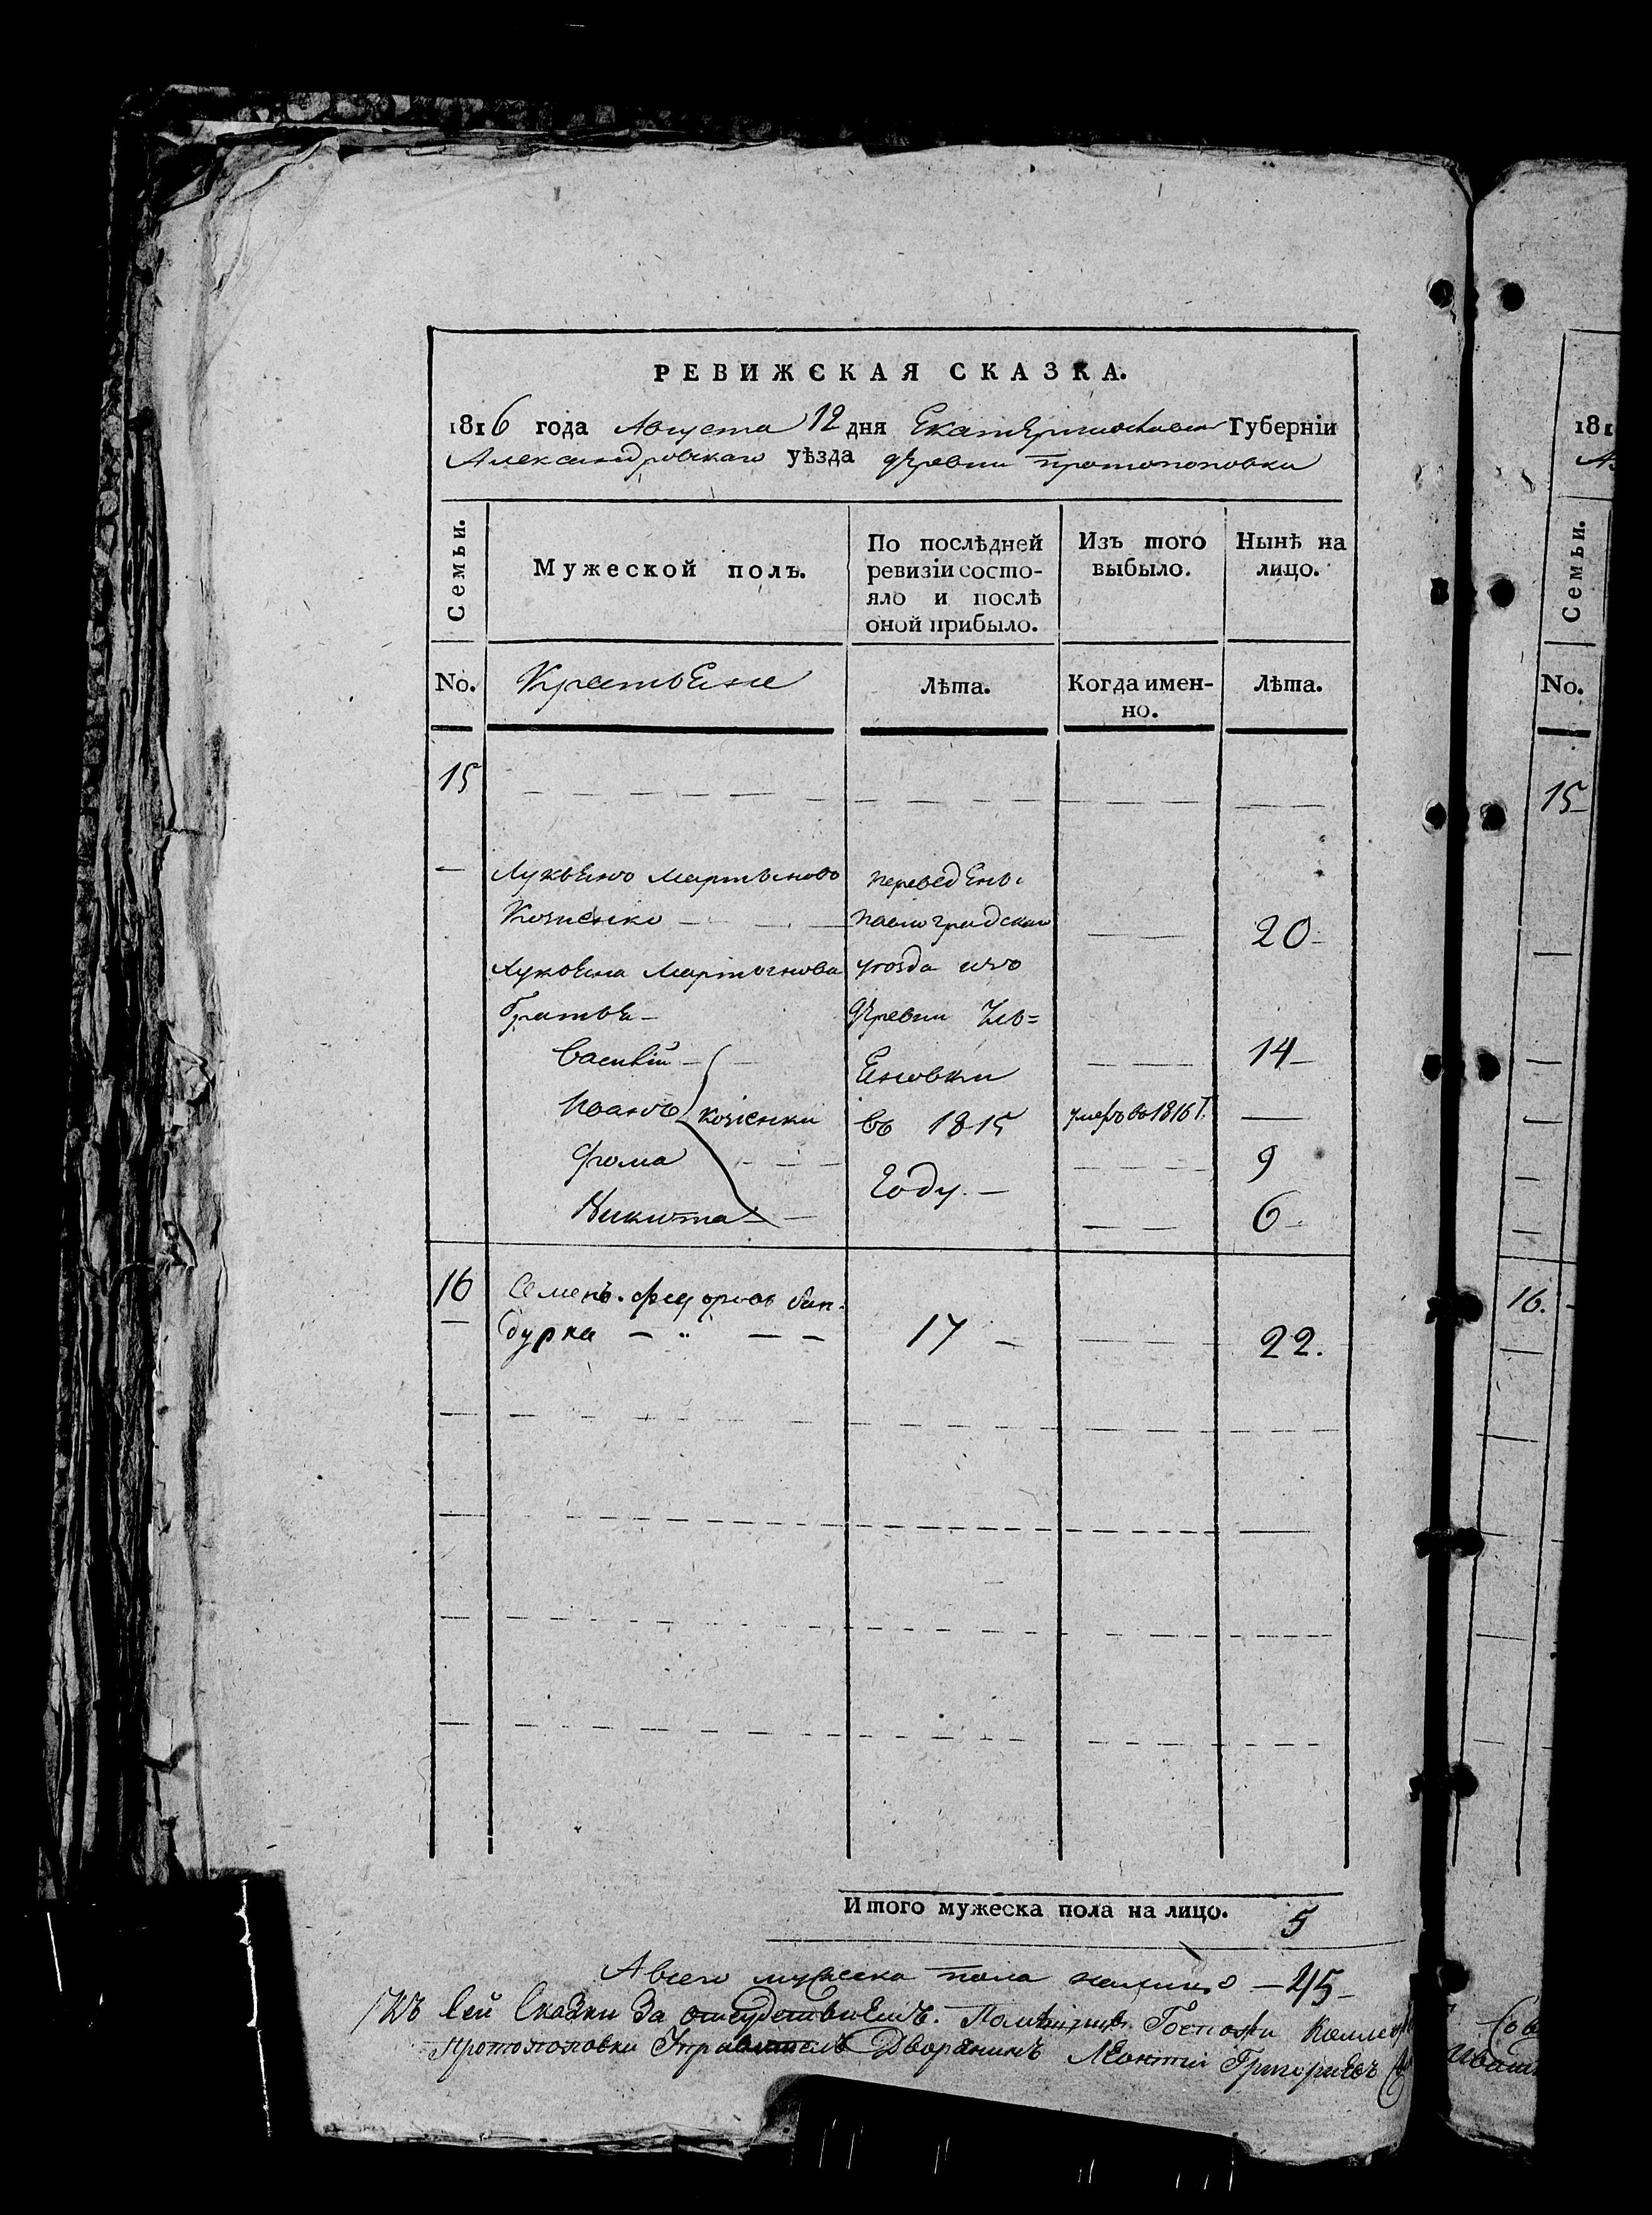 РЕВИЖСКАЯ СКАЗКА.
1816 года Августа 12 дня Екатеринославской Губерніи
Александровскаго уѣзда деревни протопоповки
Семьи.
Мужеской полъ.
По послѣдней ревизіи состо-
яло и послѣ
оной прибыло.
Изъ того
выбыло.
Нынѣ на
лицо.
No.
Крестьяне
Лѣта.
Когда имен-
но.
Лѣта.
15
Лукьянъ Мартыновъ переведены
Козиенко павлоградскаго 20
Лукьяна Мартынова уѣзда изъ
братья деревни
Василій 14
Иванъ Козіенки въ 1815 умеръ въ 1816 г.
Фома году. 9
Никита 6
16 Семенъ Федоровъ бан-
дурка 17 22.
Итого мужеска пола на лицо. 5
А всего мужеска пола налицо 45
Къ сей Сказки За отсудствиемъ. Помѣщицы Госпожи
Протопоповки Управитель Дворянинъ Леонтій Григориевъ
181
Семьи.
No.
15
16.